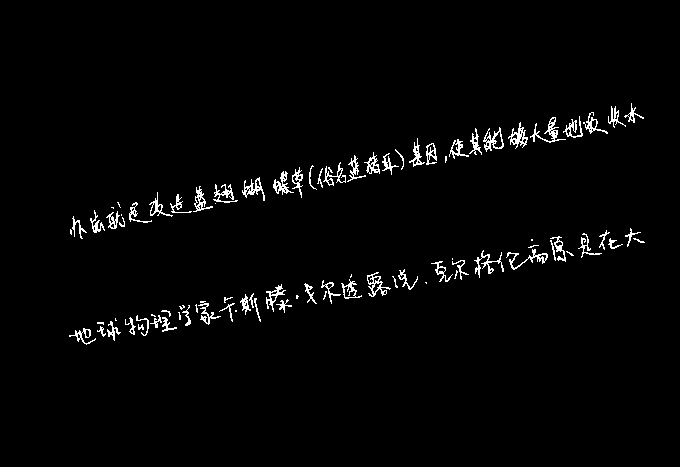 办法就是改造蓝翅蝴蝶草(俗名蓝猪耳)基因,使其能够大量地吸收水
地球物理学家卡斯滕·戈尔透露说,克尔格伦高原是在大